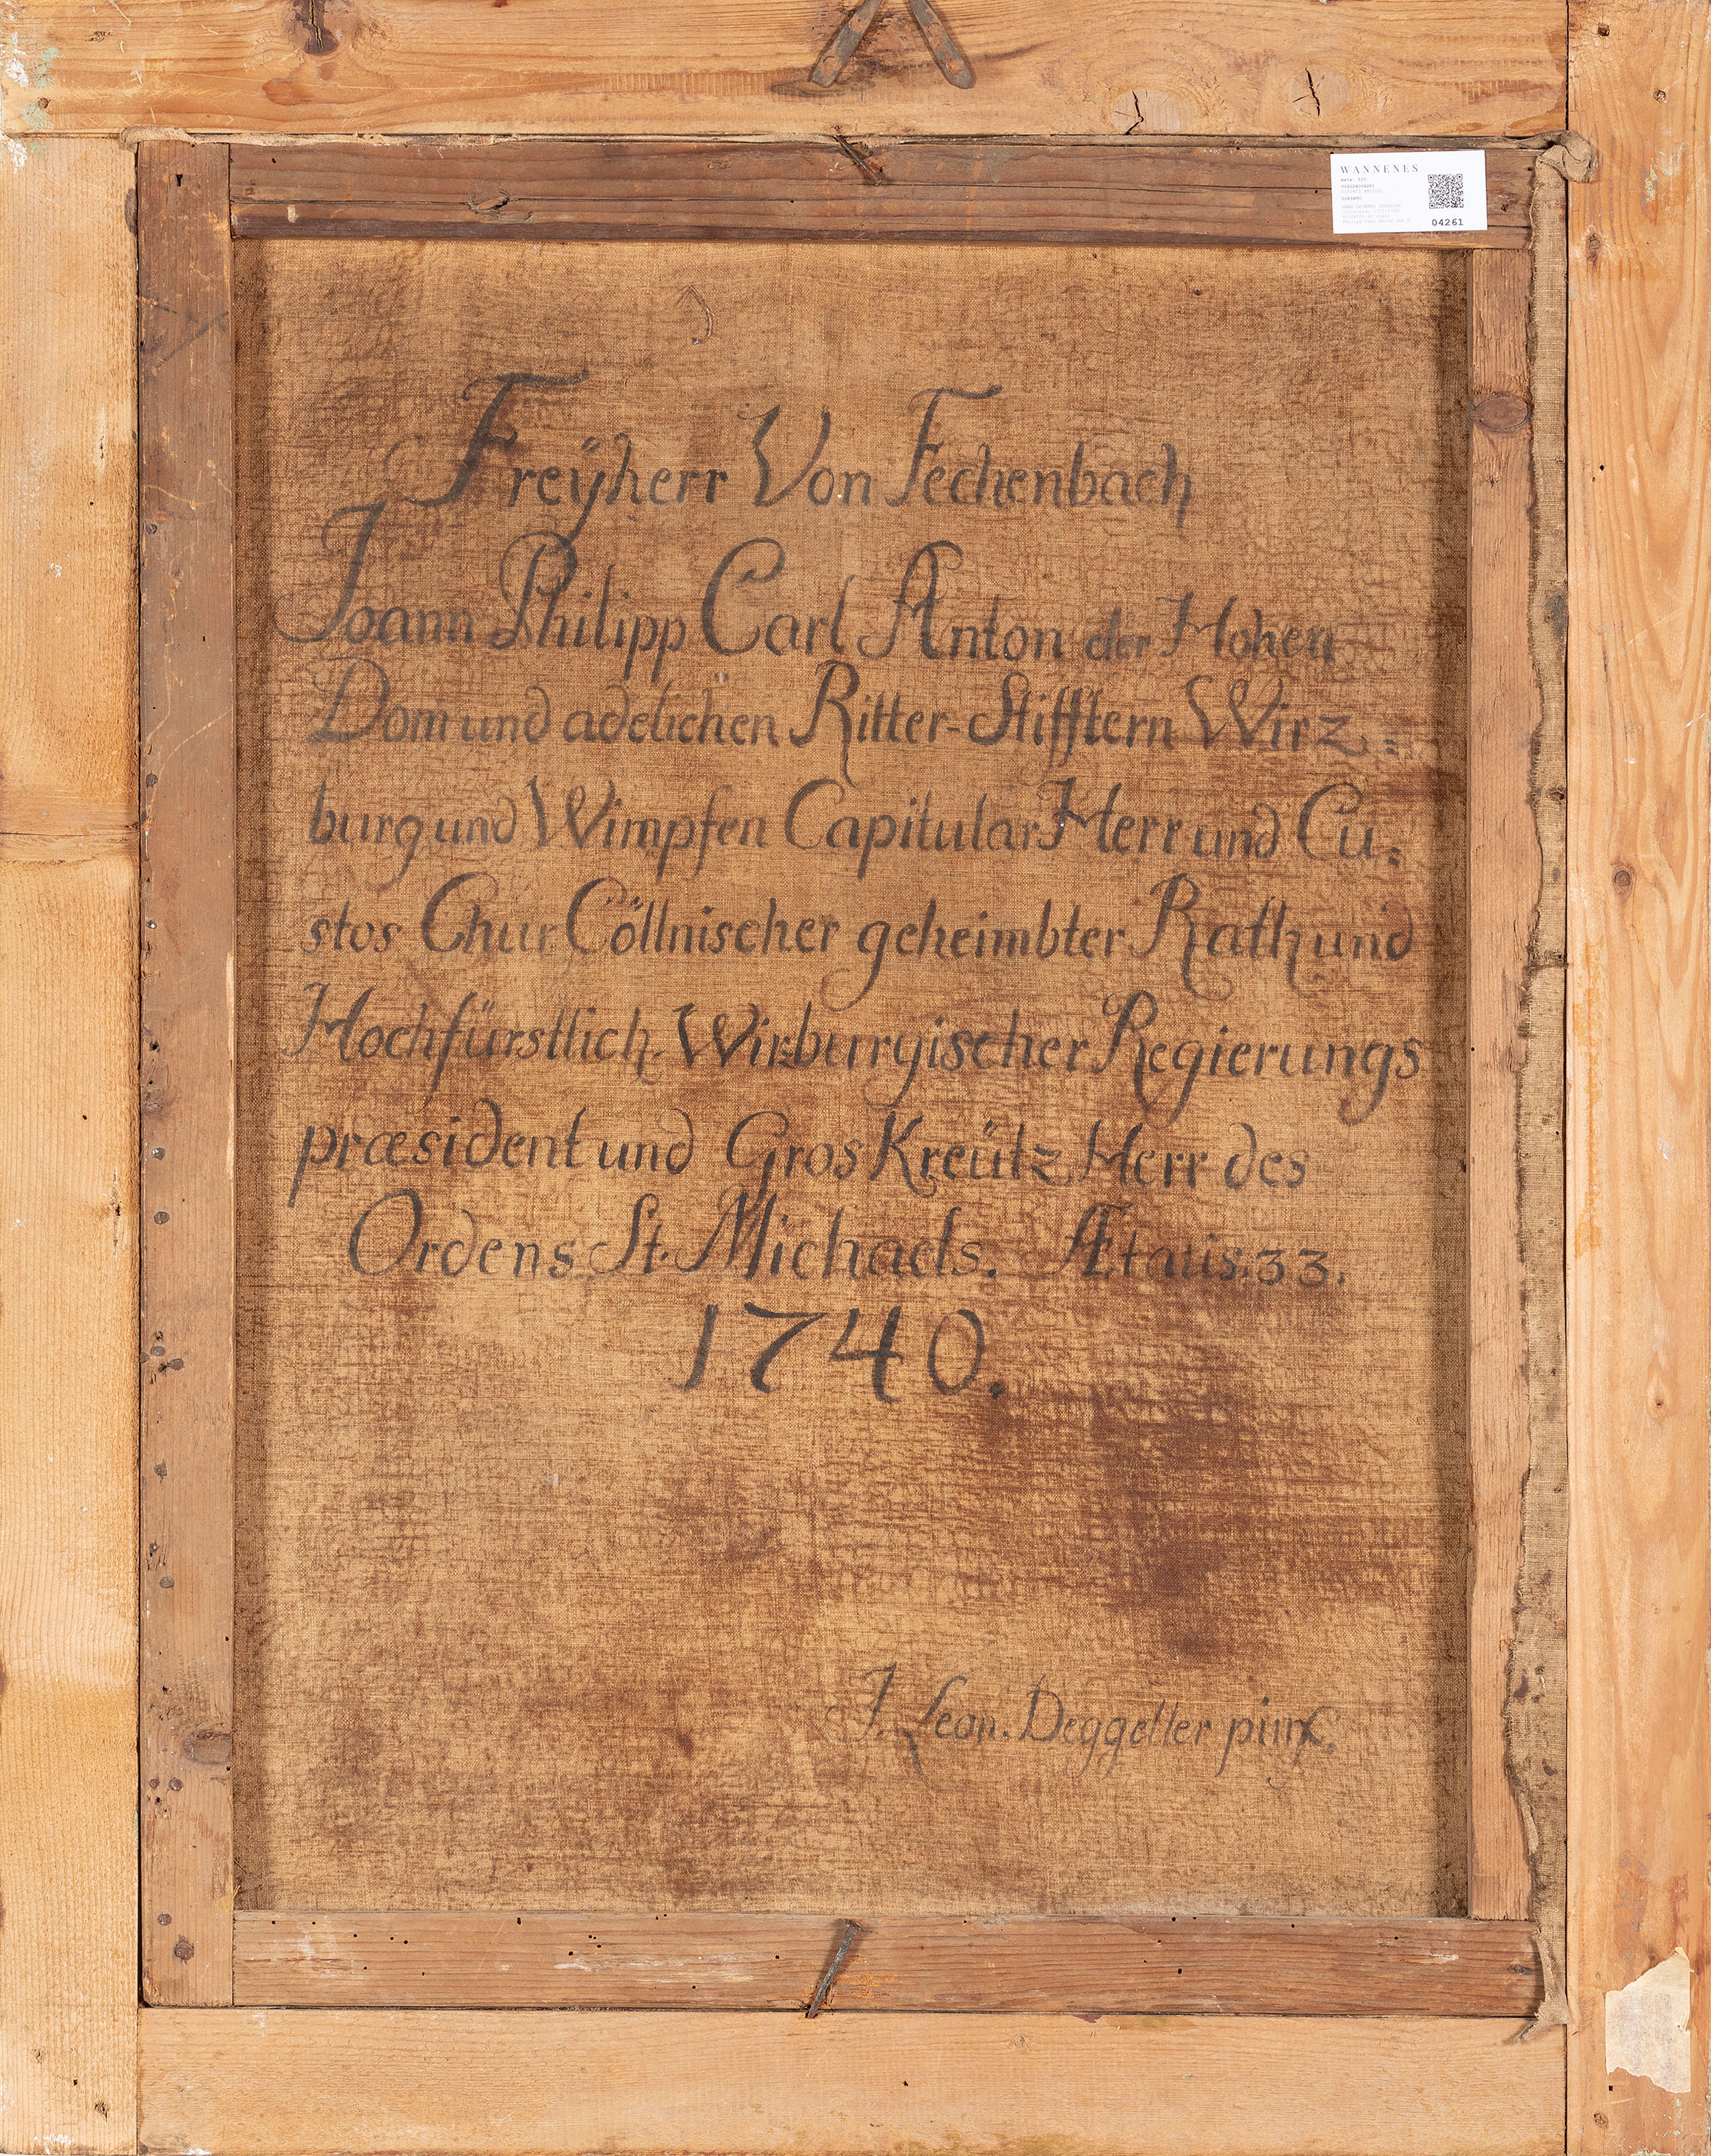 WANNENES
04261
Freÿherr Von Fechenbach
Joann Philipp Carl Anton der Hohen
Dom und adelichen Ritter-Stifftern Wirz=
burg und Wimpfen Capitular Herr und Cu=
stos Chur Cöllnischer geheimbter Rath und
Hochfürstlich Wirzburgischer Regierungs
præsident und Gros Kreütz Herr des
Ordens St. Michaels. Ætatis. 33.
1740.
J. Leon. Deggeller pinx.